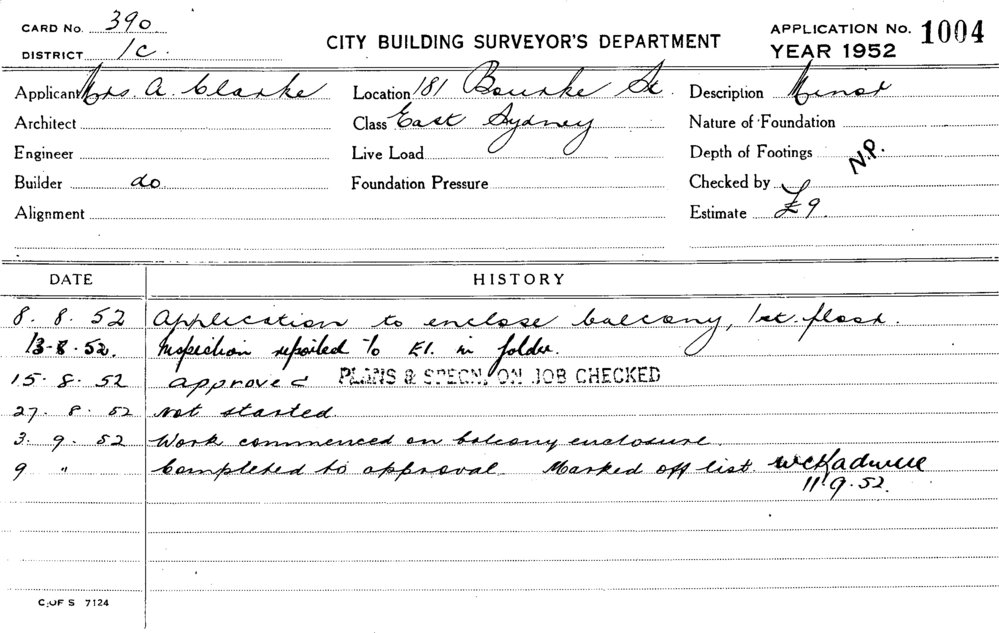 CARD No. 390
DISTRICT 1C.
CITY BUILDING SURVEYOR'S DEPARTMENT
APPLICATION No. 1004
YEAR 1952
Applicant Mrs. A. Clarke
Location 181 Bourke St.
Description Minor
Architect
Class East Sydney
Nature of Foundation
Engineer
Live Load
Depth of Footings N.P.
Builder do
Foundation Pressure
Checked by
Alignment
Estimate £9
DATE HISTORY
8. 8. 52 Application to enclose balcony, 1st. floor.
13-8.52. Inspection reported to E1. in folder.
15. 8. 52 approved PLANS & SPECN. ON JOB CHECKED
27. 8. 52 not started
3. 9. 52 Work commenced on balcony enclosure.
9 " Completed to approval. Marked off list
11.9.52.
C. OF S 7124